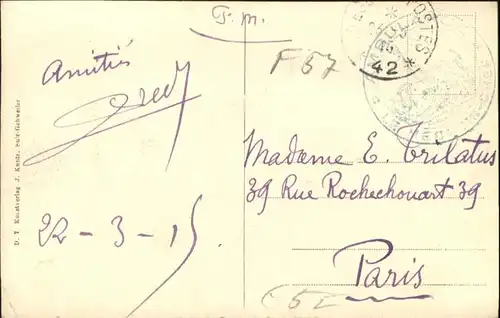 F. M.
Amitiés
F57
42
D. T. Kunstverlag J. Kuntz, Sulz-Gebweiler
Madame E. Trilatus
39 Rue Rochechouart 39
22 - 3 - 15
Paris